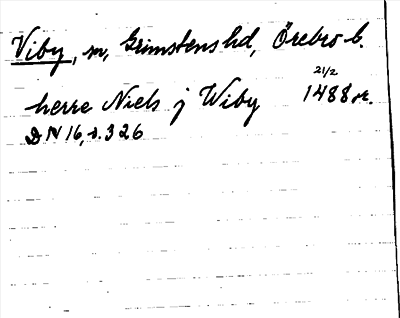 Viby, sn, Grimstens hd, Örebro l.
21/2
herre Niels j Wiby 1488 or.
DN 16, s. 326